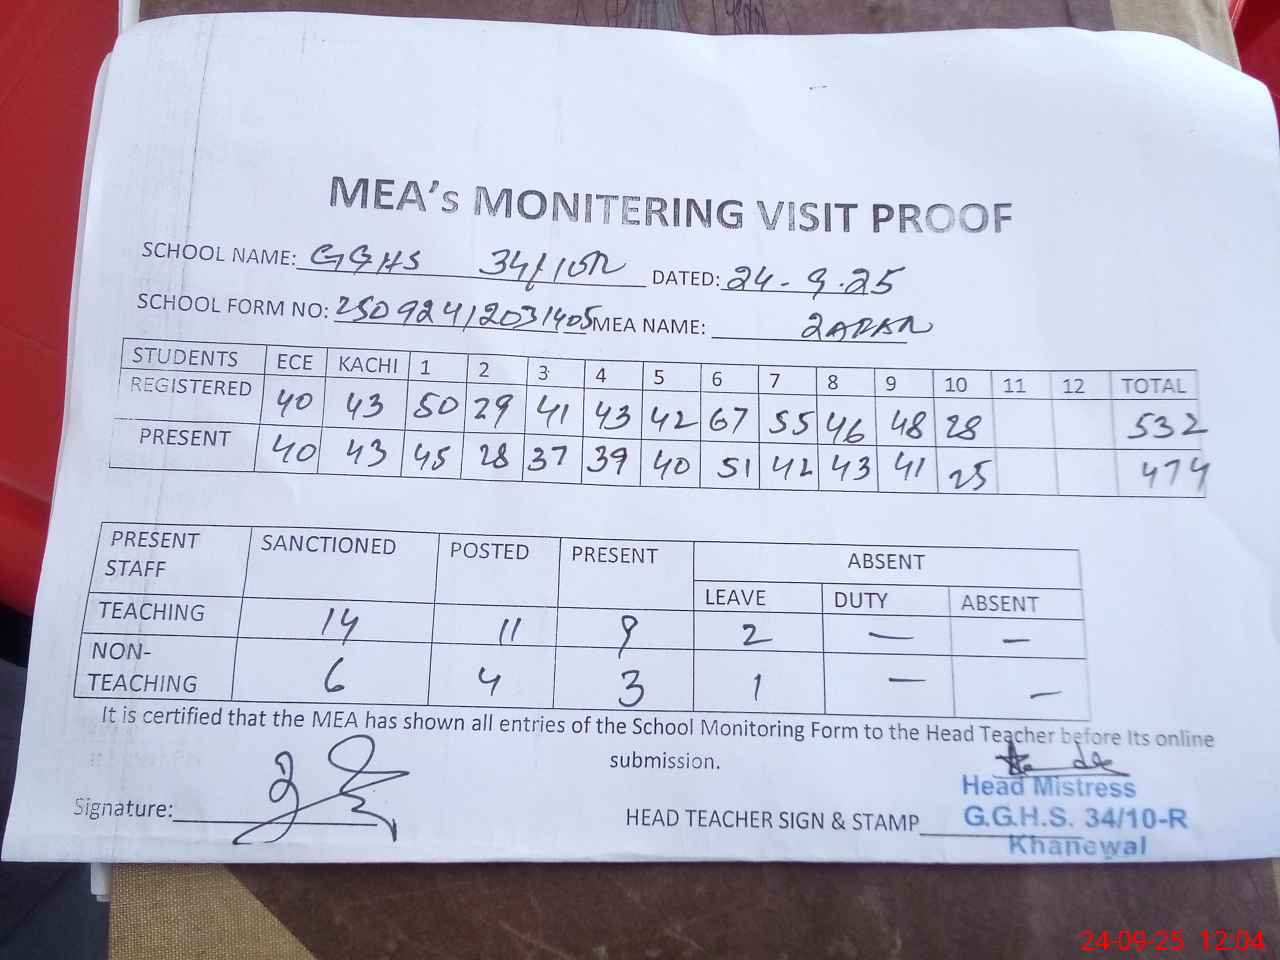 MEA's MONITERING VISIT PROOF
SCHOOL NAME: GGHS 34/10R DATED: 24-9-25
SCHOOL FORM NO: 25092412031405 MEA NAME: ZAFAR
STUDENTS ECE KACHI 1 2 3 4 5 6 7 8 9 10 11 12 TOTAL
REGISTERED 40 43 50 29 41 43 42 67 55 46 48 28 532
PRESENT 40 43 45 28 37 39 40 51 42 43 41 25 474
PRESENT STAFF SANCTIONED POSTED PRESENT ABSENT
LEAVE DUTY ABSENT
TEACHING 14 11 9 2 — —
NON-TEACHING 6 4 3 1 — —
It is certified that the MEA has shown all entries of the School Monitoring Form to the Head Teacher before Its online
submission.
Signature:
HEAD TEACHER SIGN & STAMP
Head Mistress
G.G.H.S. 34/10-R
Khanewal
24-09-25 12:04